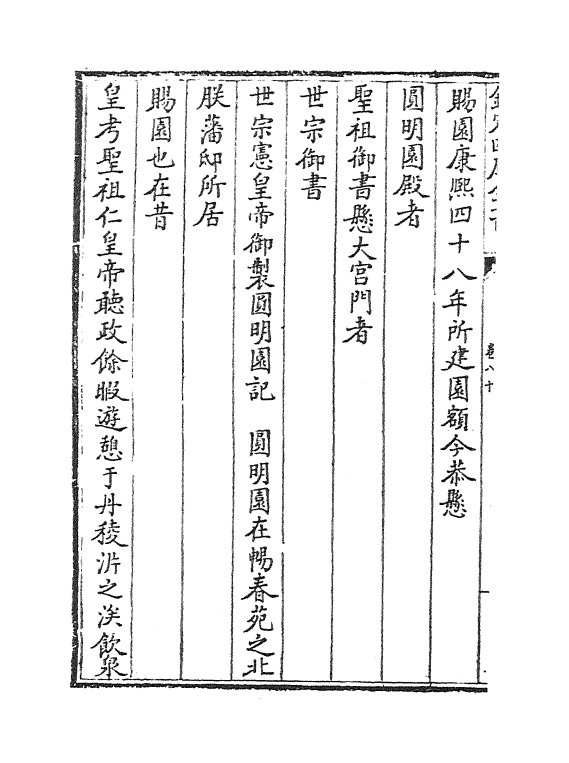 欽定四庫全書
卷八十
賜園康熙四十八年所建園額今恭懸
圓明園殿者
聖祖御書懸大宮門者
世宗御書
世宗憲皇帝御製圓明園記　圓明園在暢春苑之北
朕藩邸所居
賜園也在昔
皇考聖祖仁皇帝聽政餘暇遊憩于丹稜沜之涘飲泉